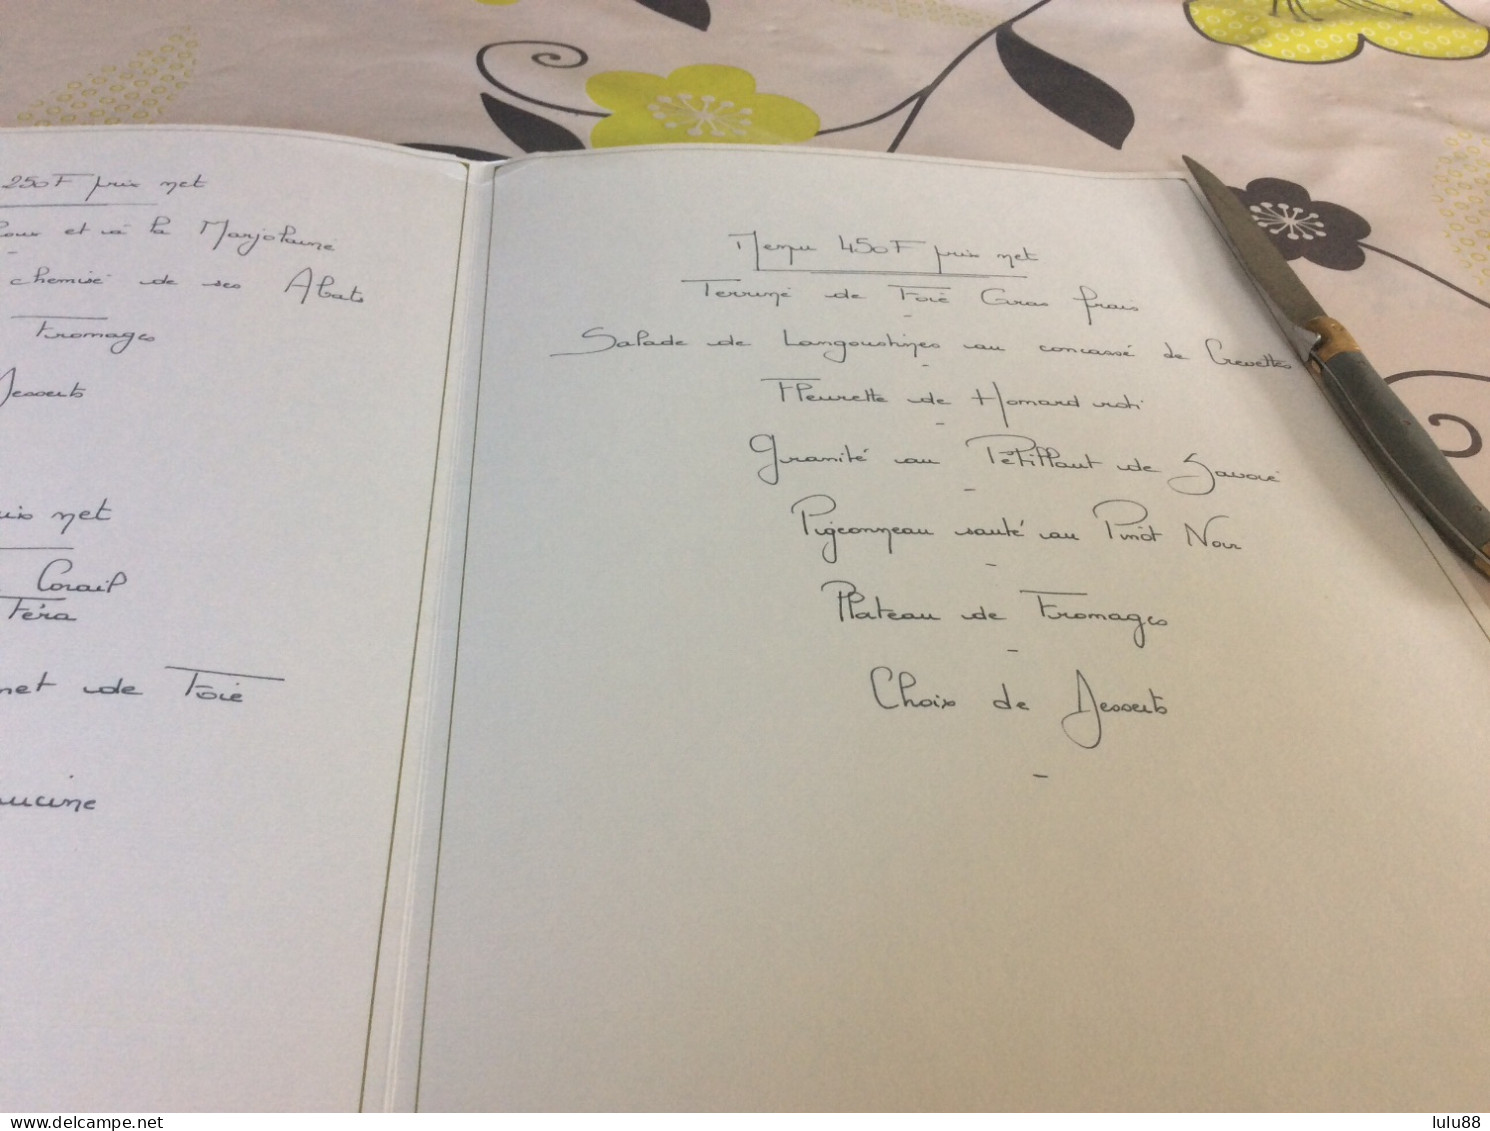 250F prix net
et à la Marjolaine
chemisé de ses Abats
Fromages
Desserts
net
Corail
Féra
de Foie
Menu 450F prix net
Terrine de Foie Gras frais
-
Salade de Langoustines au concassé de Crevettes
-
Fleurette de Homard roti
-
Granité au Pétillant de Savoie
-
Pigeonneau sauté au Pinot Noir
-
Plateau de Fromages
-
Choix de Desserts
-
www.delcampe.net
lulu88